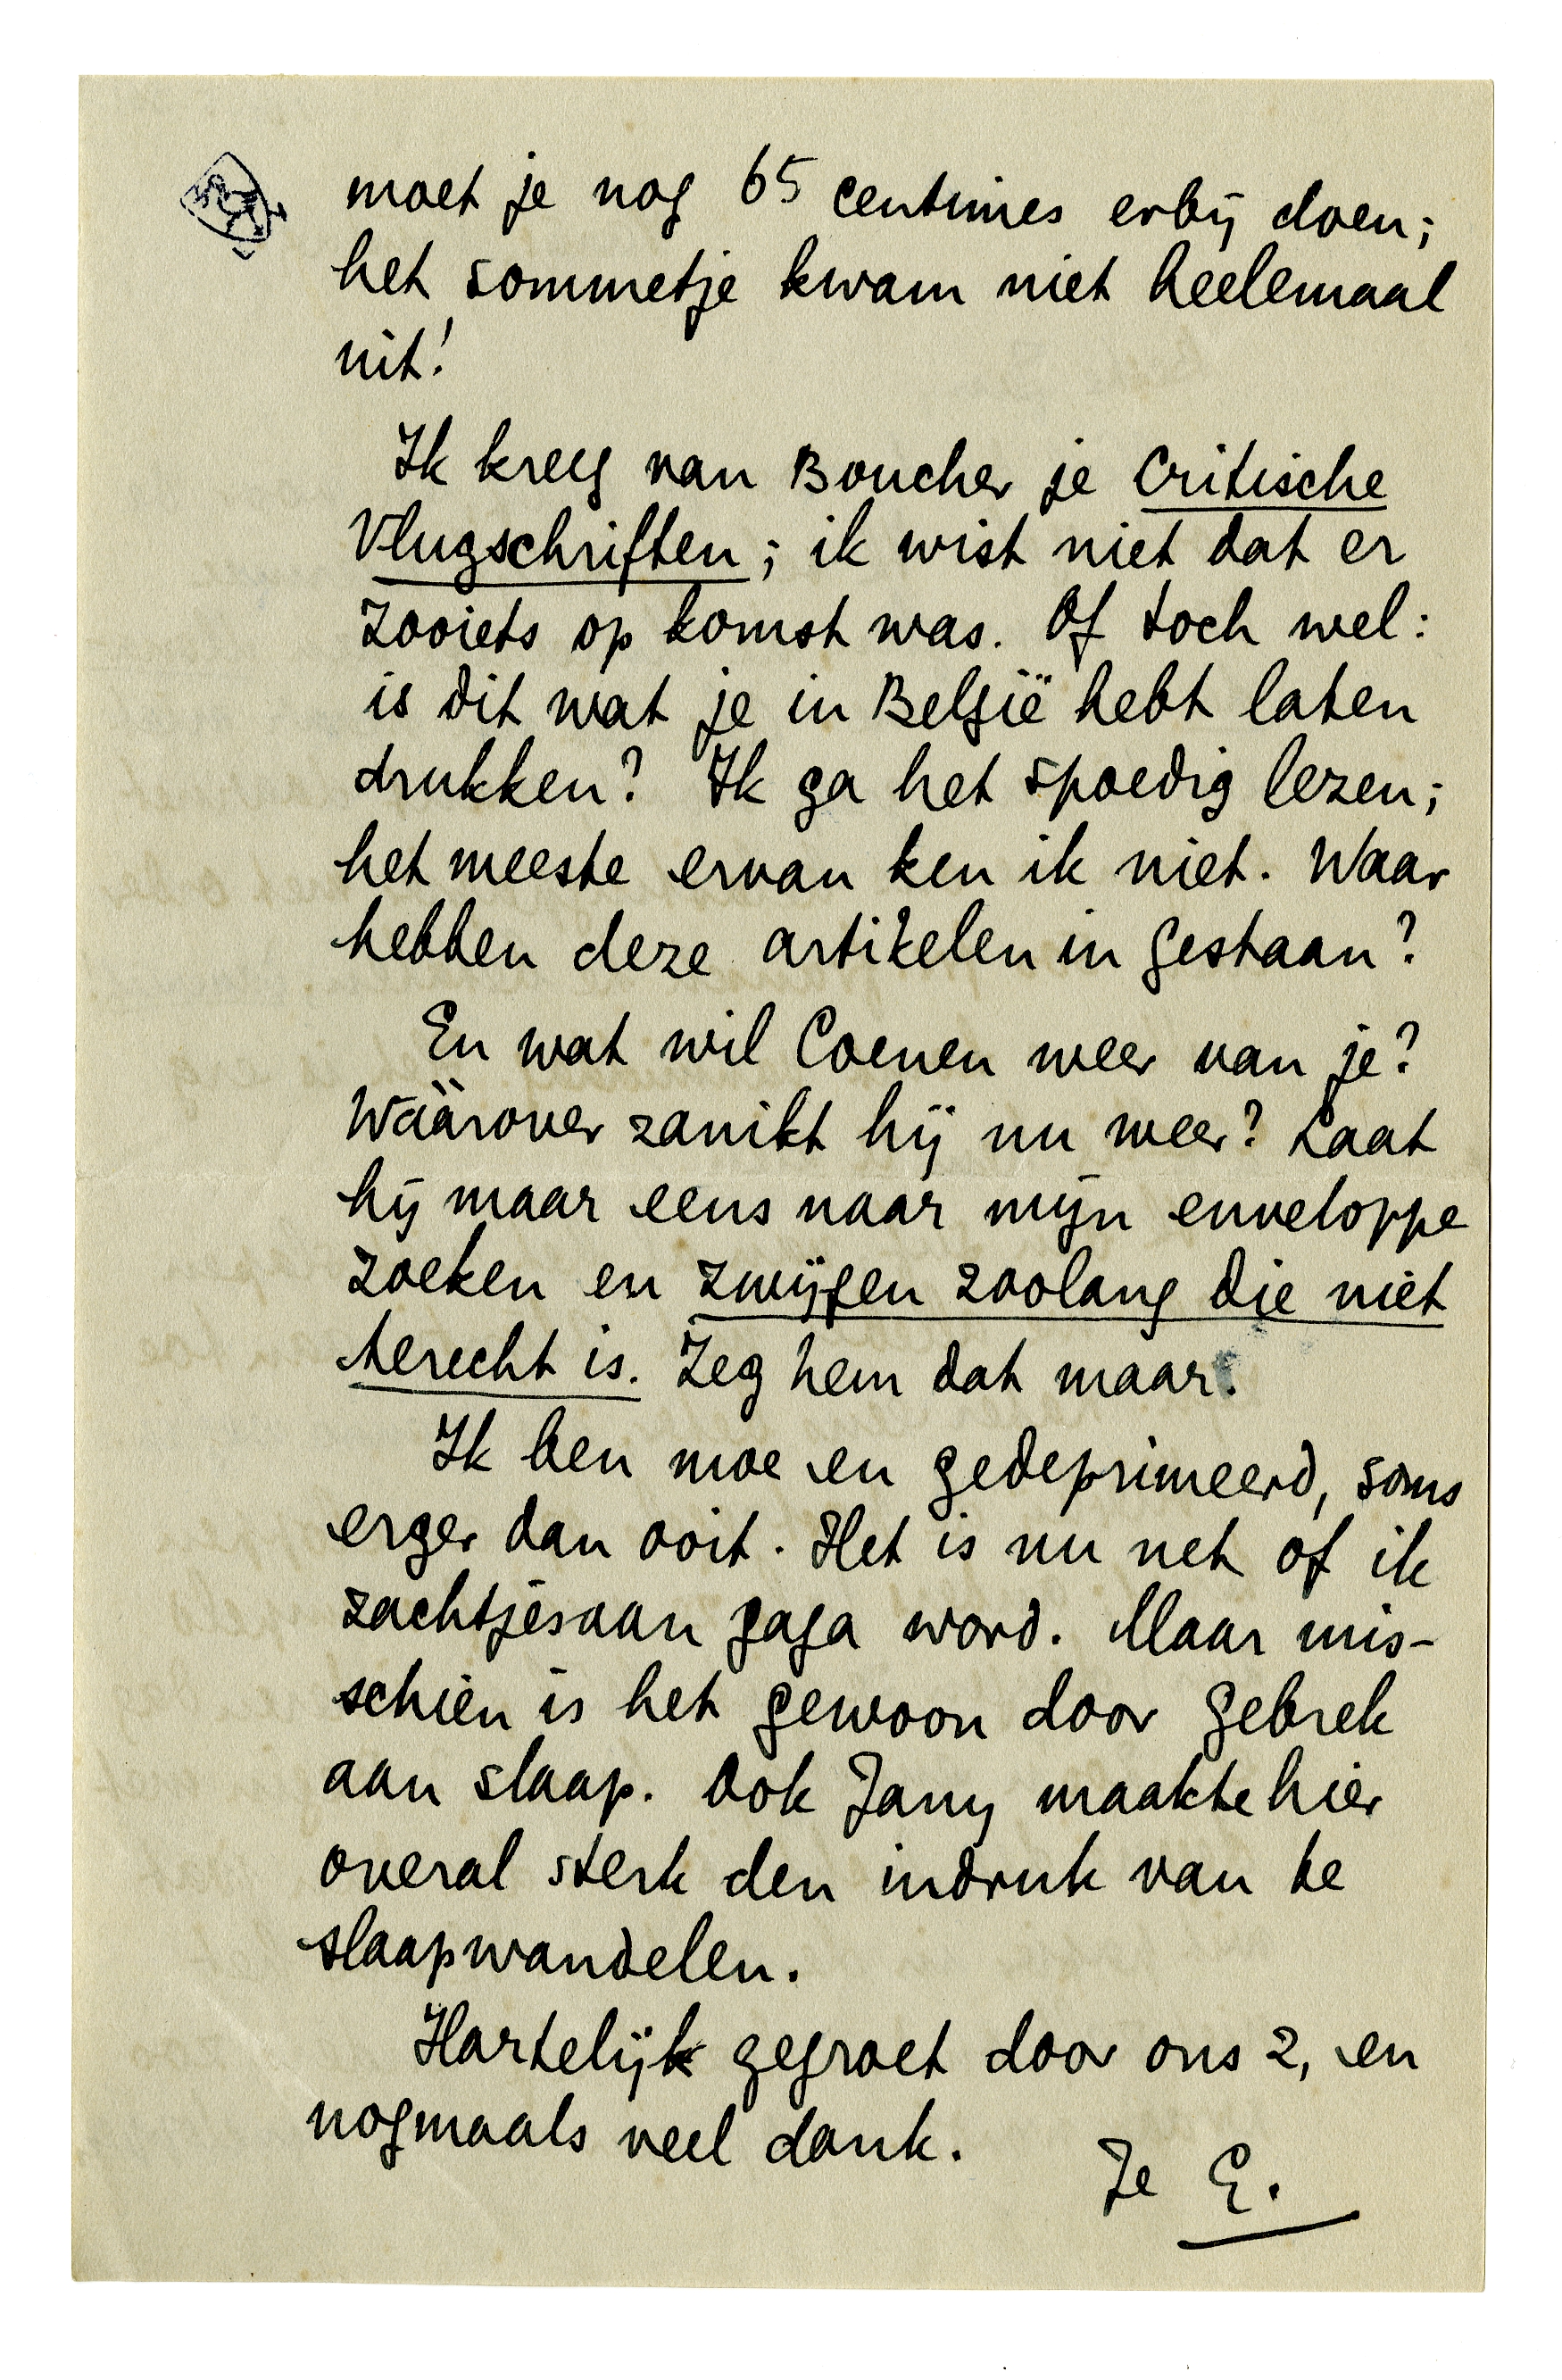 moet je nog 65 centimes erbij doen;
het sommetje kwam niet heelemaal
uit!
Ik kreeg van Boucher je Critische
Vlugschriften; ik wist niet dat er
zooiets op komst was. Of toch wel:
is dit wat je in België hebt laten
drukken? Ik ga het spoedig lezen;
het meeste ervan ken ik niet. Waar
hebben deze artikelen in gestaan?
En wat wil Coenen weer van je?
Wáárover zanikt hij nu weer? Laat
hij maar eens naar mijn enveloppe
zoeken en zwijgen zoolang die niet
terecht is. Zeg hem dat maar.
Ik ben moe en gedeprimeerd, soms
erger dan ooit. Het is nu net of ik
zachtjesaan gaga word. Maar mis-
schien is het gewoon door gebrek
aan slaap. Ook Jany maakte hier
overal sterk den indruk van te
slaapwandelen.
Hartelijk gegroet door ons 2, en
nogmaals veel dank.
Je E.